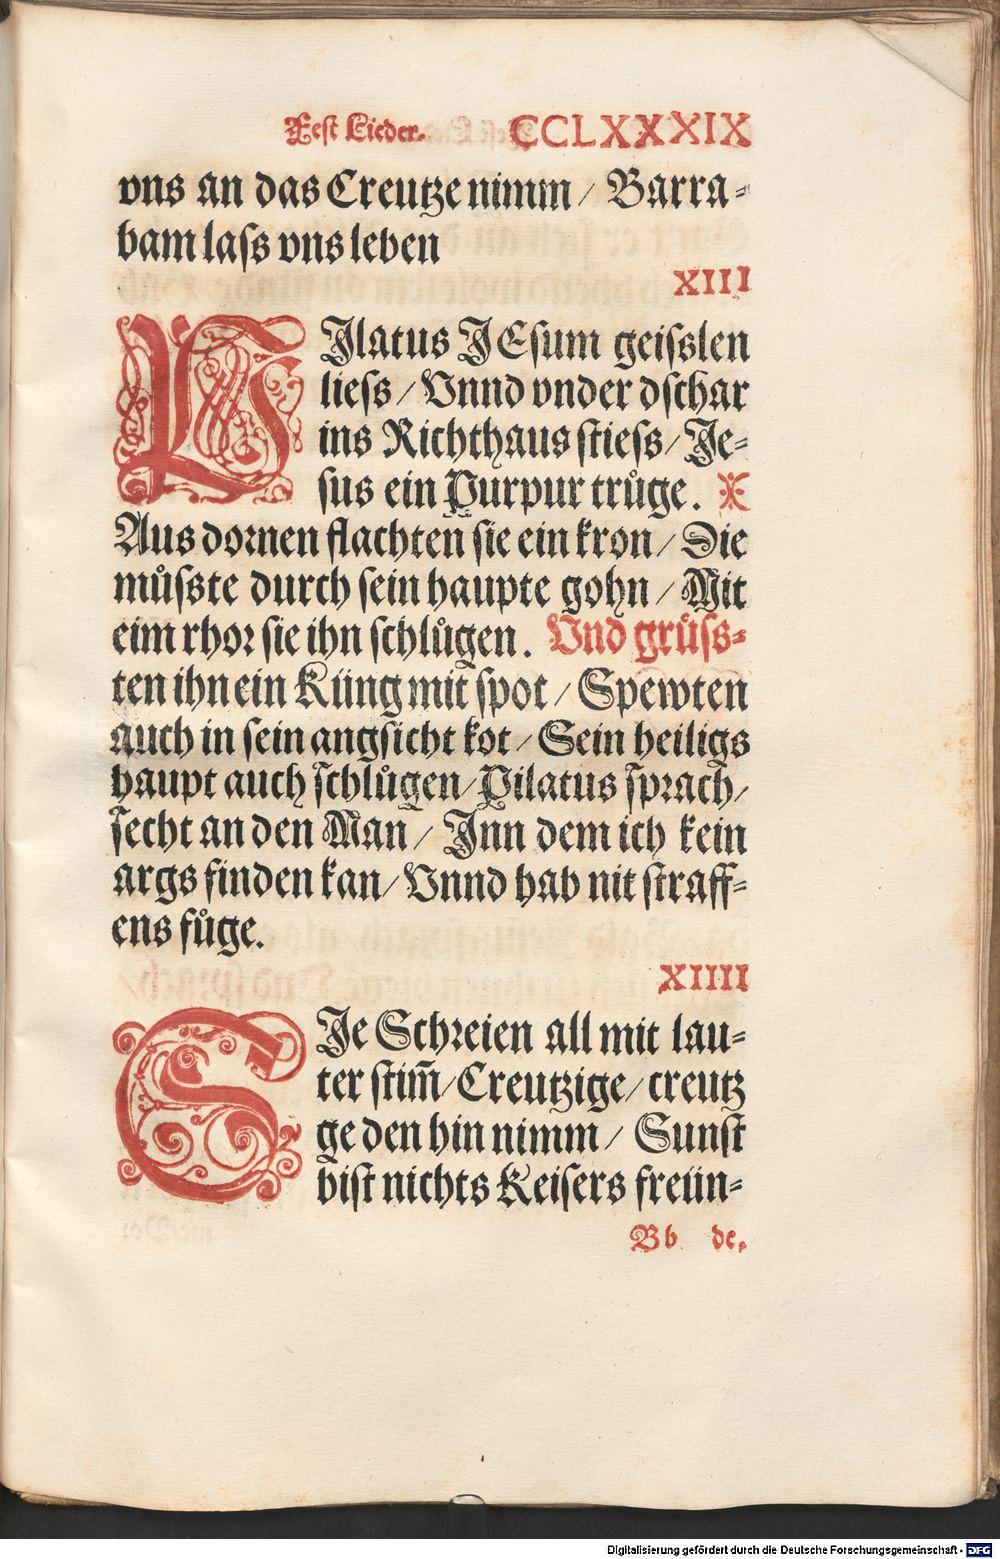 Fest Lieder. CCLXXXIX
vns an das Creutze nimm / Barra⸗
bam lass vns leben
XIII
PIlatus JEsum geisslen
liess / Vnnd vnder dschar
ins Richthaus stiess / Je⸗
sus ein Purpur trůge.
Aus dornen flachten sie ein kron / Die
můsste durch sein haupte gohn / Mit
eim rhor sie ihn schlůgen. Vnd grüss⸗
ten ihn ein Küng mit spot / Spewten
auch in sein angsicht kot / Sein heiligs
haupt auch schlůgen / Pilatus sprach /
secht an den Man / Inn dem ich kein
args finden kan / Vnnd hab nit straff⸗
ens fůge.
XIIII
SIe Schreien all mit lau⸗
ter stim̄ / Creutzige / creutz
ge den hin nimm / Sunst
bist nichts Keisers freün⸗
Bb de.
Digitalisierung gefördert durch die Deutsche Forschungsgemeinschaft - DFG